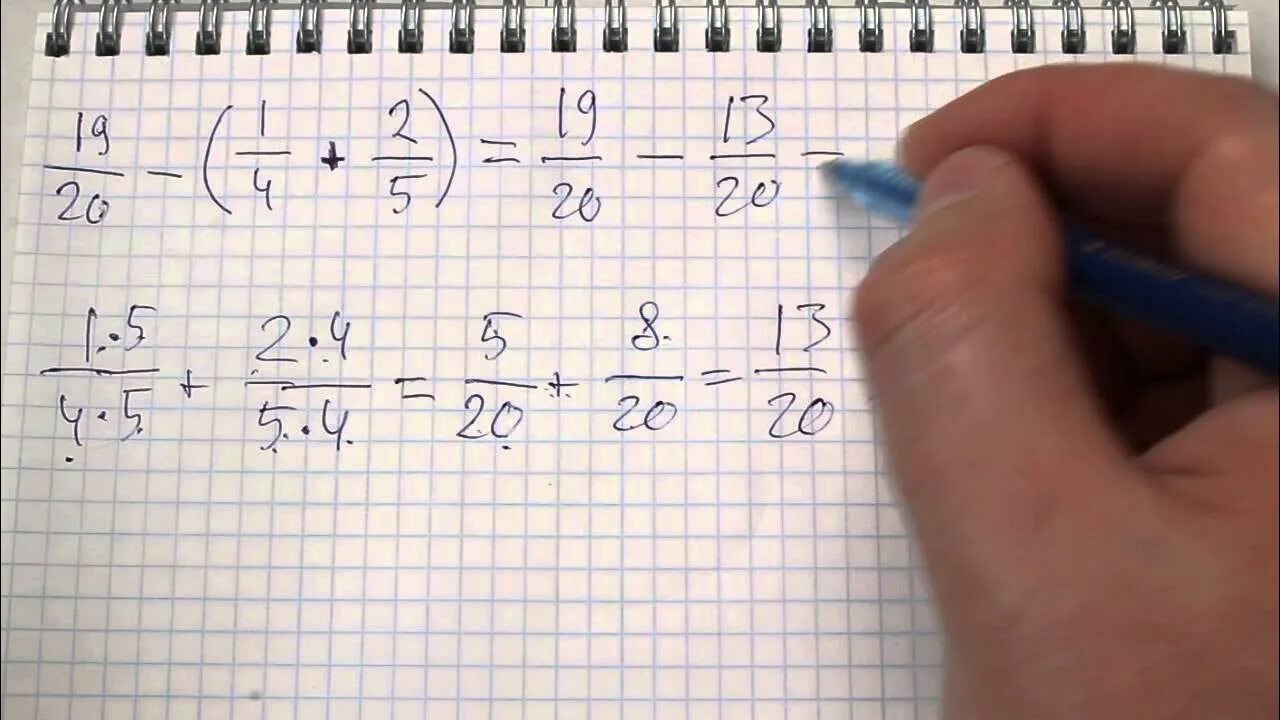 19/20 - (1/4 + 2/5) = 19/20 - 13/20 =
1·5/4·5 + 2·4/5·4 = 5/20 + 8/20 = 13/20